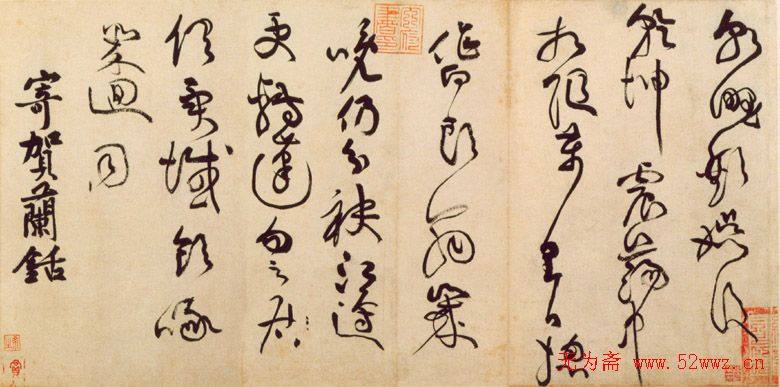 朝野歡娛後
乾坤震蕩中
相隨萬里日總
作白頭翁歲
晚仍分袂江邊
更轉蓬勿云
俱異域飲啄
幾迴同
寄賀蘭銛
无为斋 www.52wwz.cn